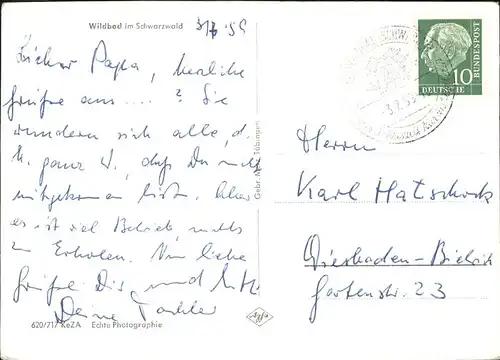 Wildbad im Schwarzwald
Lieber Papa, herzliche
Grüße aus .... ? Sie
wundern sich alle, d.
h. ganz W., daß Du nicht
mitgekommen bist. Aber
es ist viel Betrieb, nichts
zu Erholen. Nun liebe
Grüße Dir, und
Deine Tochter
620/717 KeZA Echte Photographie
Gebr. Metz Tübingen
DEUTSCHE
BUNDESPOST
10
Herrn
Karl Hatschock
Wiesbaden-Biebrich
Gartenstr. 23